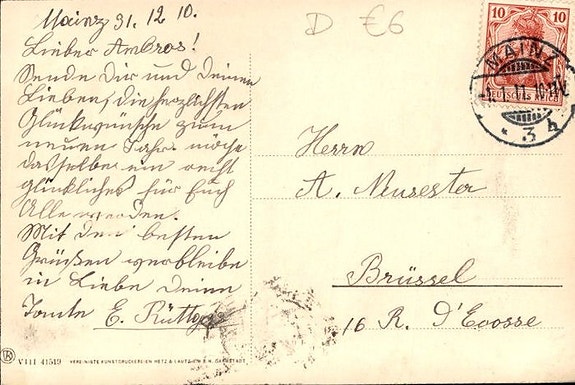 Mainz 31. 12 10.
Lieber Ambros!
Sende Dir und Deinen
Lieben, die herzlichsten
Glückwünsche zum
neuen Jahr möge
dasselbe ein recht
glückliches für Euch
Alle werden.
Mit den besten
Grüßen verbleibe
in Liebe Deine
Tante E. Rüttgers
D €6
10 10
DEUTSCHES REICH
MAINZ
1.1.11. 10-11V.
* 3 h
Herrn
A. Neusester
Brüssel
16 R. D'Ecosse
VIII 41519 VEREINIGTE KUNSTDRUCKEREIEN METZ & LAUTZ